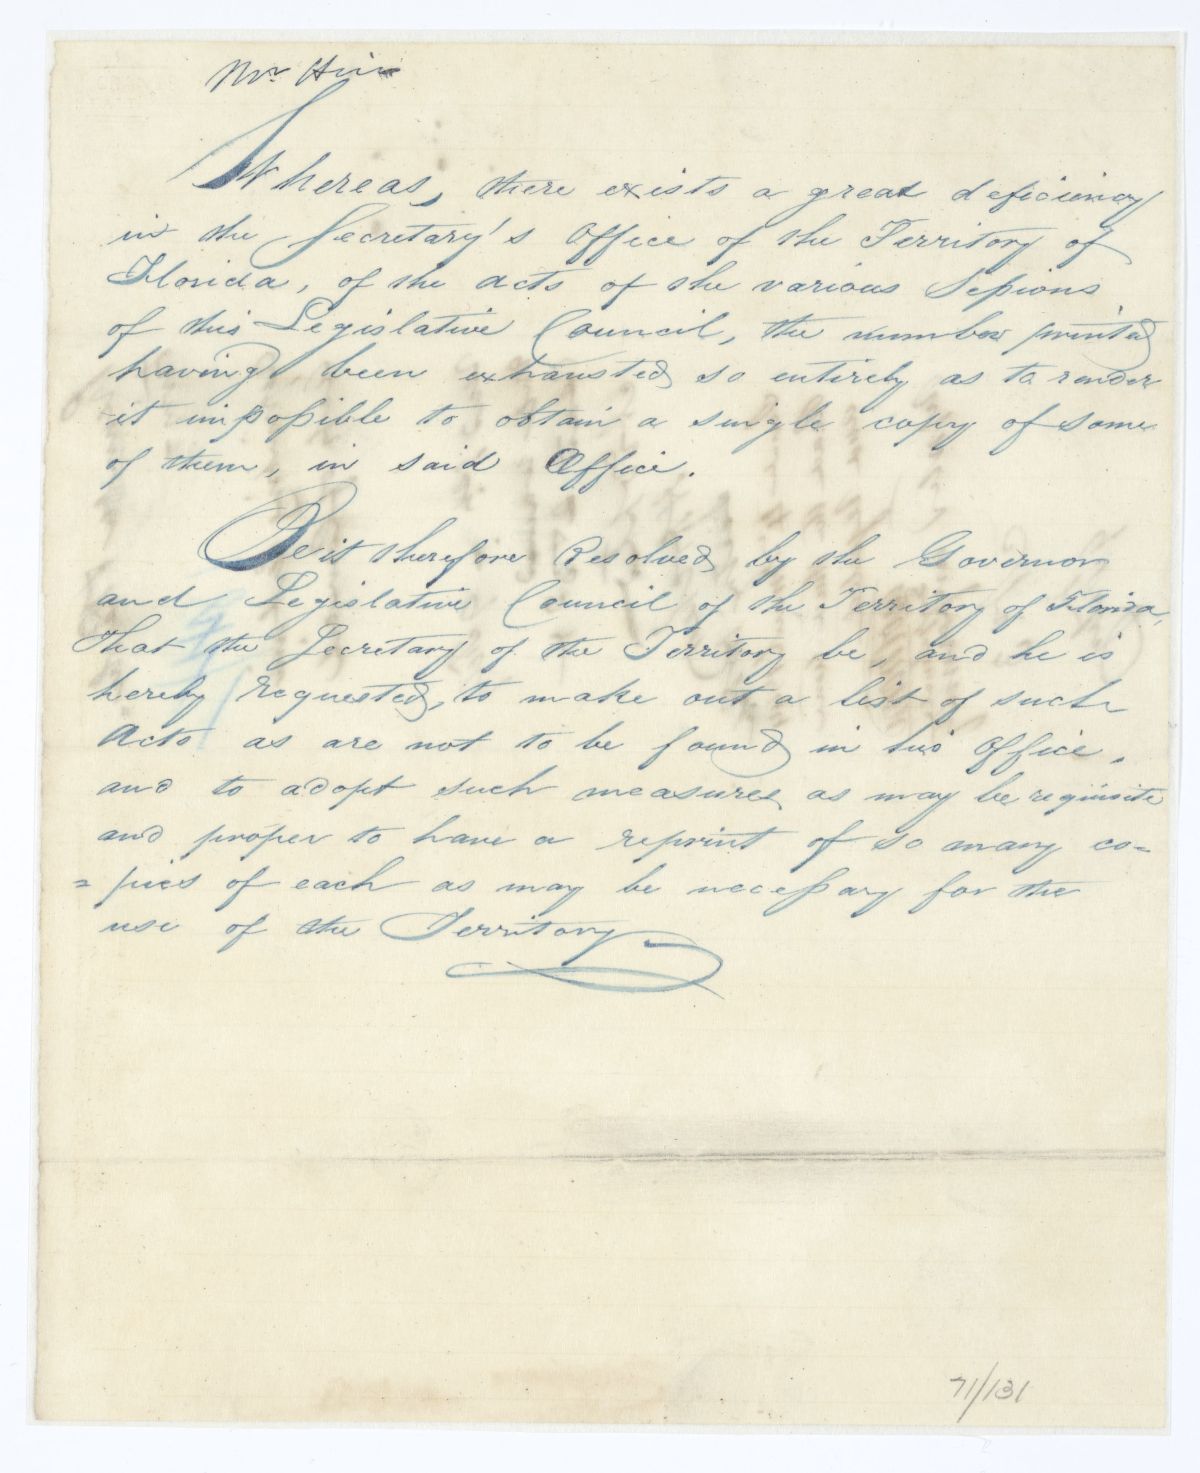 Mr
Whereas, there exists a great deficiency
in the Secretary's Office of the Territory of
Florida, of the acts of the various Sessions
of this Legislative Council, the number printed
having been exhausted so entirely as to render
it impossible to obtain a single copy of some
of them, in said Office.
Be it therefore Resolved by the Governor
and Legislative Council of the Territory of Florida,
That the Secretary of the Territory be, and he is
hereby requested, to make out a list of such
Acts as are not to be found in his Office,
and to adopt such measures as may be requisite
and proper to have a reprint of so many co=
=pies of each as may be necessary for the
use of the Territory
71/131